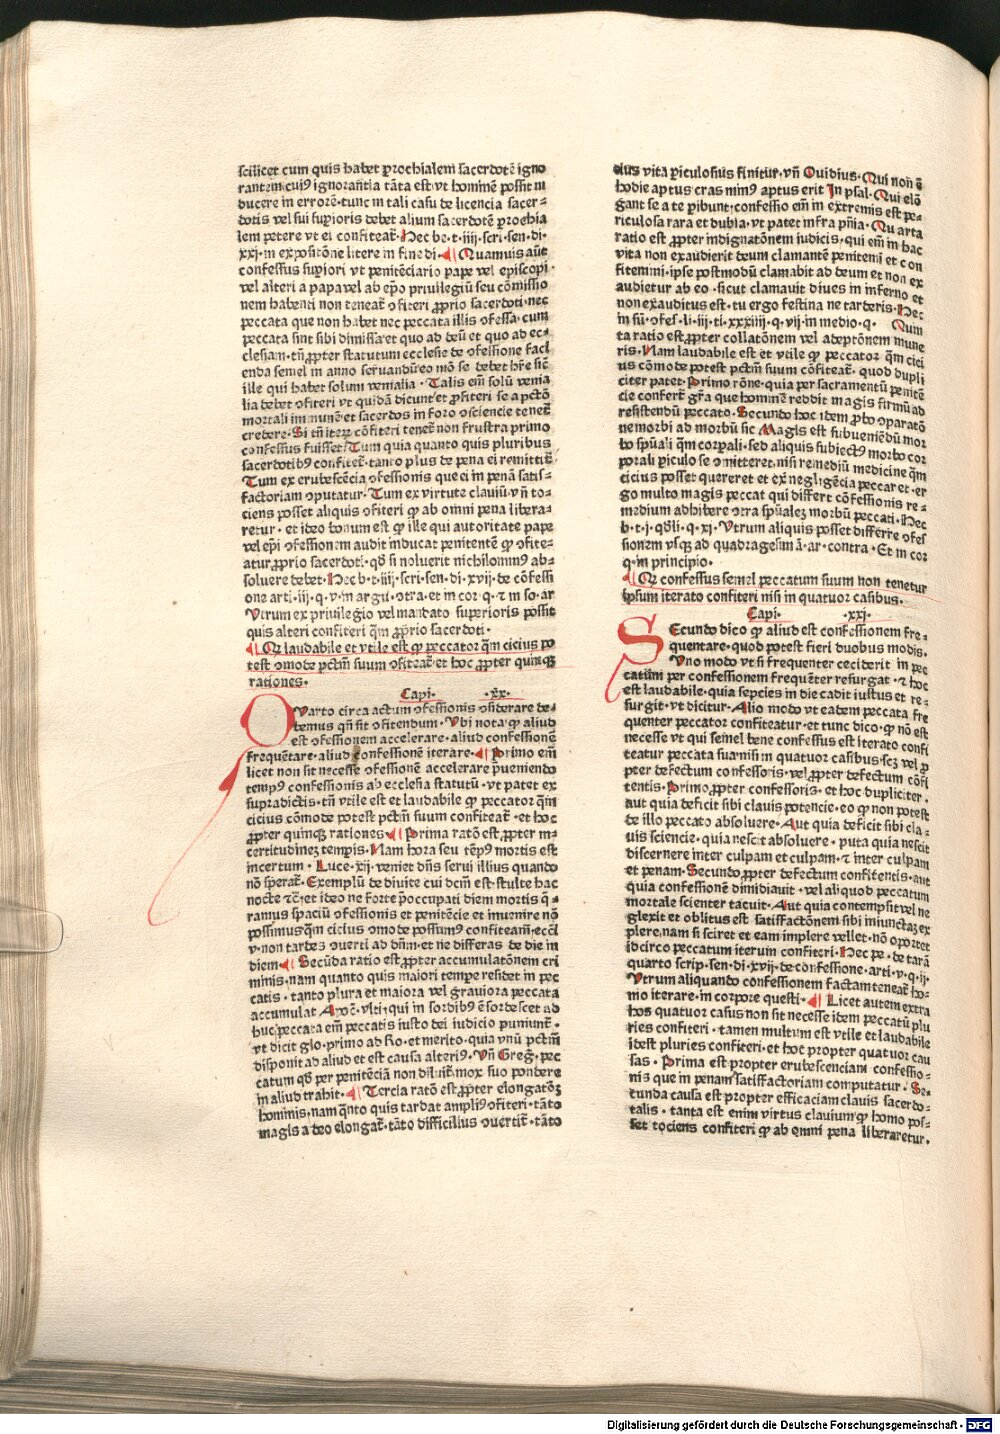 scilicet cum quis habet prochialem sacerdotē igno
rantem:cuiꝰ ignorantia tāta est vt hominē possit in
ducere in errorē·tunc in tali casu de licencia sacer-
dotis vel sui supioris debet alium sacerdotē prochia
lem petere vt ei confiteat̄· Hec be·t·iiij·scri·sen·di·
xxj·in expositōne litere in fine di· Quamuis aūt
confessus supiori vt penitēciario pape vel episcopi·
vel alteri a papa vel ab epō priuilegiū seu cōmissio
nem habenti non teneat̄ ɔfiteri ꝓprio sacerdoti·nec
peccata que non habet nec peccata illis ɔfessa·cum
peccata sint sibi dimissa et quo ad deū et quo ad ec-
clesiam·tn̄ ꝓpter statutum ecclesie de ɔfessione faci
enda semel in anno seruandū eo mō se debet hr̄e sic̄
ille qui habet solum venialia· Talis em̄ solū venia
lia debet ɔfiteri vt quidā dicunt et ꝓfiteri se a pctō
mortali immunē et sacerdos in foro ɔsciencie tenet̄
credere· Si tn̄ iteꝝ cōfiteri tenet̄ non frustra primo
confessus fuisset· Tum quia quanto quis pluribus
sacerdotibꝰ confitet̄·tanto plus de pena ei remittit̄
Tum ex erubescēcia ɔfessionis que ei in penā satis-
factoriam ɔputatur· Tum ex virtute clauiū·vn̄ to-
ciens posset aliquis ɔfiteri ꝙ ab omni pena libera-
retur·et ideo bonum est ꝙ ille qui autoritate pape
vel epī ɔfessionem audit inducat penitentē ꝙ ɔfite-
atur ꝓprio sacerdoti·qd̄ si noluerit nichilominꝰ ab-
soluere debet· Hec b·t·iiij·scri·sen·di·xvij·de cōfessi
one arti·iij·q·v·in argu·ɔtra·et in cor·q·⁊ in so·ar
Vtrum ex priuilegio vel mandato superioris possit
quis alteri confiteri q̄m ꝓprio sacerdoti·
Qꝫ laudabile et vtile est ꝙ peccator q̄m cicius po
test ɔmode pctm̄ suum ɔfiteat̄·et hoc ꝓpter quinqꝫ
rationes·
Capi· ·xx·
Quarto circa actum ɔfessionis ɔsiderare de-
bemus qn̄ sit ɔfitendum· Vbi nota ꝙ aliud
est ɔfessionem accelerare·aliud confessionē
frequētare·aliud confessionē iterare· Primo em̄
licet non sit necesse ɔfessionē accelerare p̄ueniendo
tempꝰ confessionis ab ecclesia statutū·vt patet ex
supradictis·tn̄ vtile est et laudabile ꝙ peccator q̄m
cicius cōmode potest pctm̄ suum confiteat̄·et hoc
ꝓpter quinqꝫ rationes Prima ratō est ꝓpter in-
certitudinez temp̄is· Nam hora seu tēpꝰ mortis est
incertum· Luce·xij·veniet dn̄s serui illius quando
nō sperat̄· Exemplū de diuite cui dcm̄ est·stulte hac
nocte ⁊c̄·et ideo ne forte p̄occupati diem mortis q̄-
ramus spaciū ɔfessionis et penitēcie et inuenire nō
possimus q̄m cicius ɔmode possumꝰ confiteam̄·ecc̄i
v·non tardes ɔuerti ad dn̄m·et ne differas de die in
diem Secūda ratio est ꝓpter accumulatōnem cri
minis·nam quanto quis maiori tempe residet in pec
catis·tanto plura et maiora vel grauiora peccata
accumulat Apoc̄·vlti·qui in sordibꝰ ē sordescet ad
huc·peccata em̄ peccatis iusto dei iudicio puniunt̄·
vt dicit glo·primo ad Ro·et merito·quia vnū pctm̄
disponit ad aliud et est causa alteriꝰ· Vn̄ Greḡ·pec
catum qd̄ per penitēciā non diluit̄·mox suo pondere
in aliud trahit· Tercia ratō est ꝓpter elongatōꝫ
hominis·nam q̄nto quis tardat ampliꝰ ɔfiteri·tāto
magis a deo elongat̄·tāto difficilius ɔuertit̄·tāto
eius vita piculosius finitur·vn̄ Ouidius·Qui non ē
hodie aptus cras minꝰ aptus erit In psal·Qui elō
gant se a te pibunt·confessio em̄ in extremis est pe-
riculosa rara et dubia·vt patet infra pn̄ia· Quarta
ratio est ꝓpter indignatōnem iudicis·qui em̄ in hac
vita non exaudierit deum clamantē peniteni et con
fitemini·ipse postmodū clamabit ad deum et non ex
audietur ab eo·sicut clamauit diues in inferno et
non exauditus est·tu ergo festina ne tarderis· Hec
in sū·ɔfes·li·iij·ti·xxxiiij·q·vij·in medio·q· Quin
ta ratio est ꝓpter collatōnem vel adeptōnem mune
ris· Nam laudabile est et vtile ꝙ peccator q̄m cici
us cōmode potest pctm̄ suum cōfiteat̄·quod dupli
citer patet· Primo rōne·quia per sacramentū penitē
cie confert̄ gr̄a que hominē reddit magis firmū ad
resistendū peccato· Secundo hoc idem ꝓbo ɔparatō
ne morbi ad morbū sic Magis est subueniēdū mor
bo spūali q̄m corpali·sed aliquis subiectꝰ morbo cor
porali piculo se ɔmitteret·nisi remediū medicine q̄m
cicius posset quereret et ex negligēcia peccaret·er
go multo magis peccat qui differt cōfessionis re-
medium adhibere ɔtra spūalez morbū peccati· Hec
b·t·j·qdli·q·xj· Vtrum aliquis posset differre ɔfes
sionem vsqꝫ ad quadragesimā·ar·contra· Et in cor
q·in principio·
Qꝫ confessus semel peccatum suum non tenetur
ipsum iterato confiteri nisi in quatuor casibus·
Capi· ·xxi·
Secundo dico ꝙ aliud est confessionem fre-
quentare·quod potest fieri duobus modis·
Vno modo vt si frequenter ceciderit in pec
catūm per confessionem frequēter resurgat·⁊ hoc
est laudabile·quia sepcies in die cadit iustus et re-
surgit·vt dicitur· Alio modo vt eadem peccata fre
quenter peccator confiteatur·et tunc dico·ꝙ nō est
necesse vt qui semel bene confessus est iterato confi
teatur peccata sua·nisi in quatuor casibus·scꝫ vel ꝓ
pter defectum confessoris·vel ꝓpter defectum cōfi
tentis· Primo ꝓpter confessoris·et hoc dupliciter·
aut quia deficit sibi clauis potencie·eo ꝙ non potest
de illo peccato absoluere· Aut quia deficit sibi cla-
uis sciencie·quia nescit absoluere·puta quia nescit
discernere inter culpam et culpam·⁊ inter culpam
et penam· Secundo ꝓpter defectum confitentis·aut
quia confessionē dimidiauit·vel aliquod peccatum
mortale scienter tacuit· Aut quia contempsit vel ne
glexit et oblitus est satisfactōnem sibi iniunctaꝫ ex
plere·nam si sciret et eam implere vellet·nō oportet
idcirco peccatum iterum confiteri· Hec pe·de tarā
quarto scrip·sen·di·xvij·de confessione·arti·v·q·ij·
Vtrum aliquando confessionem factam teneat̄ ho-
mo iterare·in corpore questi· Licet autem extra
hos quatuor casus non sit necesse idem peccatū plu
ries confiteri·tamen multum est vtile et laudabile
idest pluries confiteri·et hoc propter quatuor cau
sas· Prima est propter erubescenciam confessio-
nis que in penam satisfactoriam computatur· Se-
cunda causa est propter efficaciam clauis sacerdo-
talis·tanta est enim virtus clauium ꝙ homo pos-
set tociens confiteri ꝙ ab omni pena liberaretur·
Digitalisierung gefördert durch die Deutsche Forschungsgemeinschaft - DFG